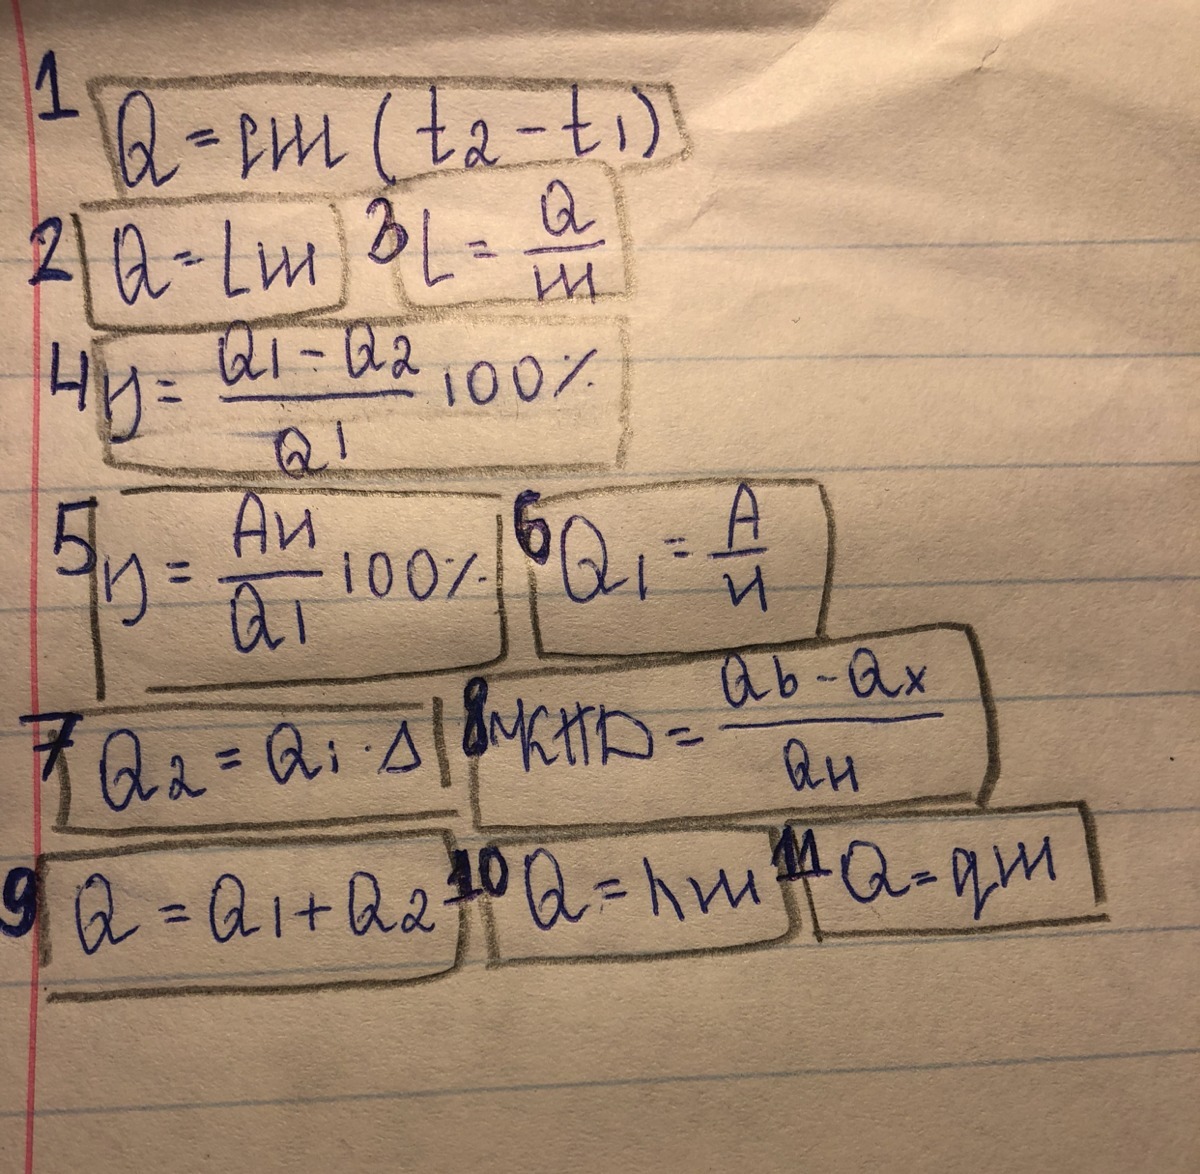 1 Q = cm (t2 - t1)
2 Q = Lm 3 L = Q/m
4 η = (Q1 - Q2)/Q1 100%
5 η = Aн/Q1 100% 6 Q1 = A/н
7 Q2 = Q1 · Δ 8 ККД = (Qb - Qx)/Qн
9 Q = Q1 + Q2 10 Q = λm 11 Q = qm